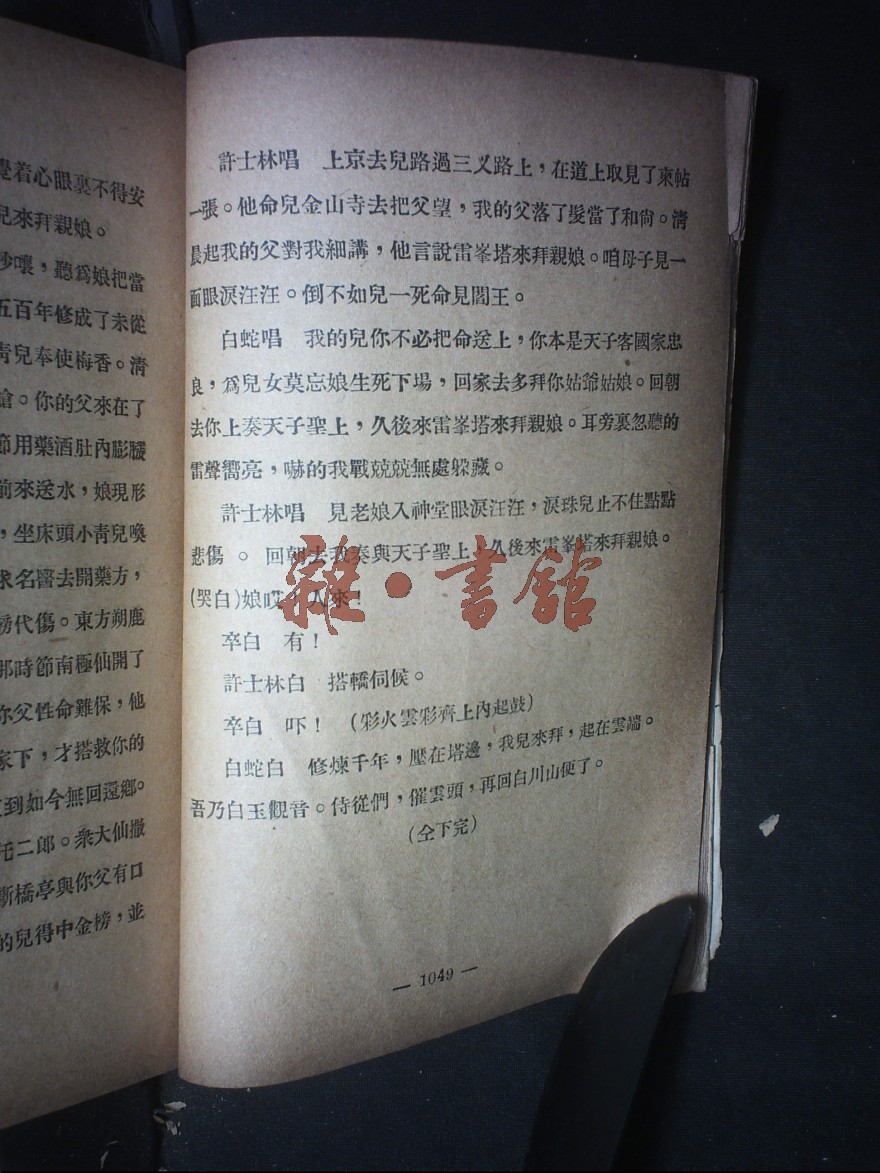 覺着心眼裏不得安
兒來拜親娘。
吵嚷，聽爲娘把當
五百年修成了未從
青兒奉使梅香。清
。你的父來在了
節用藥酒肚內膨臟
前來送水，娘現形
，坐床頭小靑兒喚
求名醫去開藥方，
代傷。東方朔鹿
那時節南極仙開了
你父性命難保，他
家下，才搭救你的
到如今無回還鄉。
二郎。衆大仙撒
斷橋亭與你父有口
的兒得中金榜，並
許士林唱　上京去兒路過三义路上，在道上取見了柬帖
一張。他命兒金山寺去把父望，我的父落了髮當了和尙。清
晨起我的父對我細講，他言說雷峯塔來拜親娘。咱母子見一
面眼淚汪汪。倒不如兒一死命見閻王。
白蛇唱　我的兒你不必把命送上，你本是天子客國家忠
良，爲兒女莫忘娘生死下場，回家去多拜你姑爺姑娘。回朝
去你上奏天子聖上，久後來雷峯塔來拜親娘。耳旁裏忽聽的
雷聲嚮亮，嚇的我戰兢兢無處躱藏。
許士林唱　見老娘入神堂眼淚汪汪，淚珠兒止不住點點
悲傷。回朝去我奏與天子聖上，久後來雷峯塔來拜親娘。
(哭白)娘哎！人來！
卒白　有！
許士林白　搭轎伺候。
卒白　吓！（彩火雲彩齊上內起鼓）
白蛇白　修煉千年，壓在塔邊，我兒來拜，起在雲端。
吾乃白玉觀音。侍從們，催雲頭，再回白川山便了。
（仝下完）
— 1049 —
雜·書館